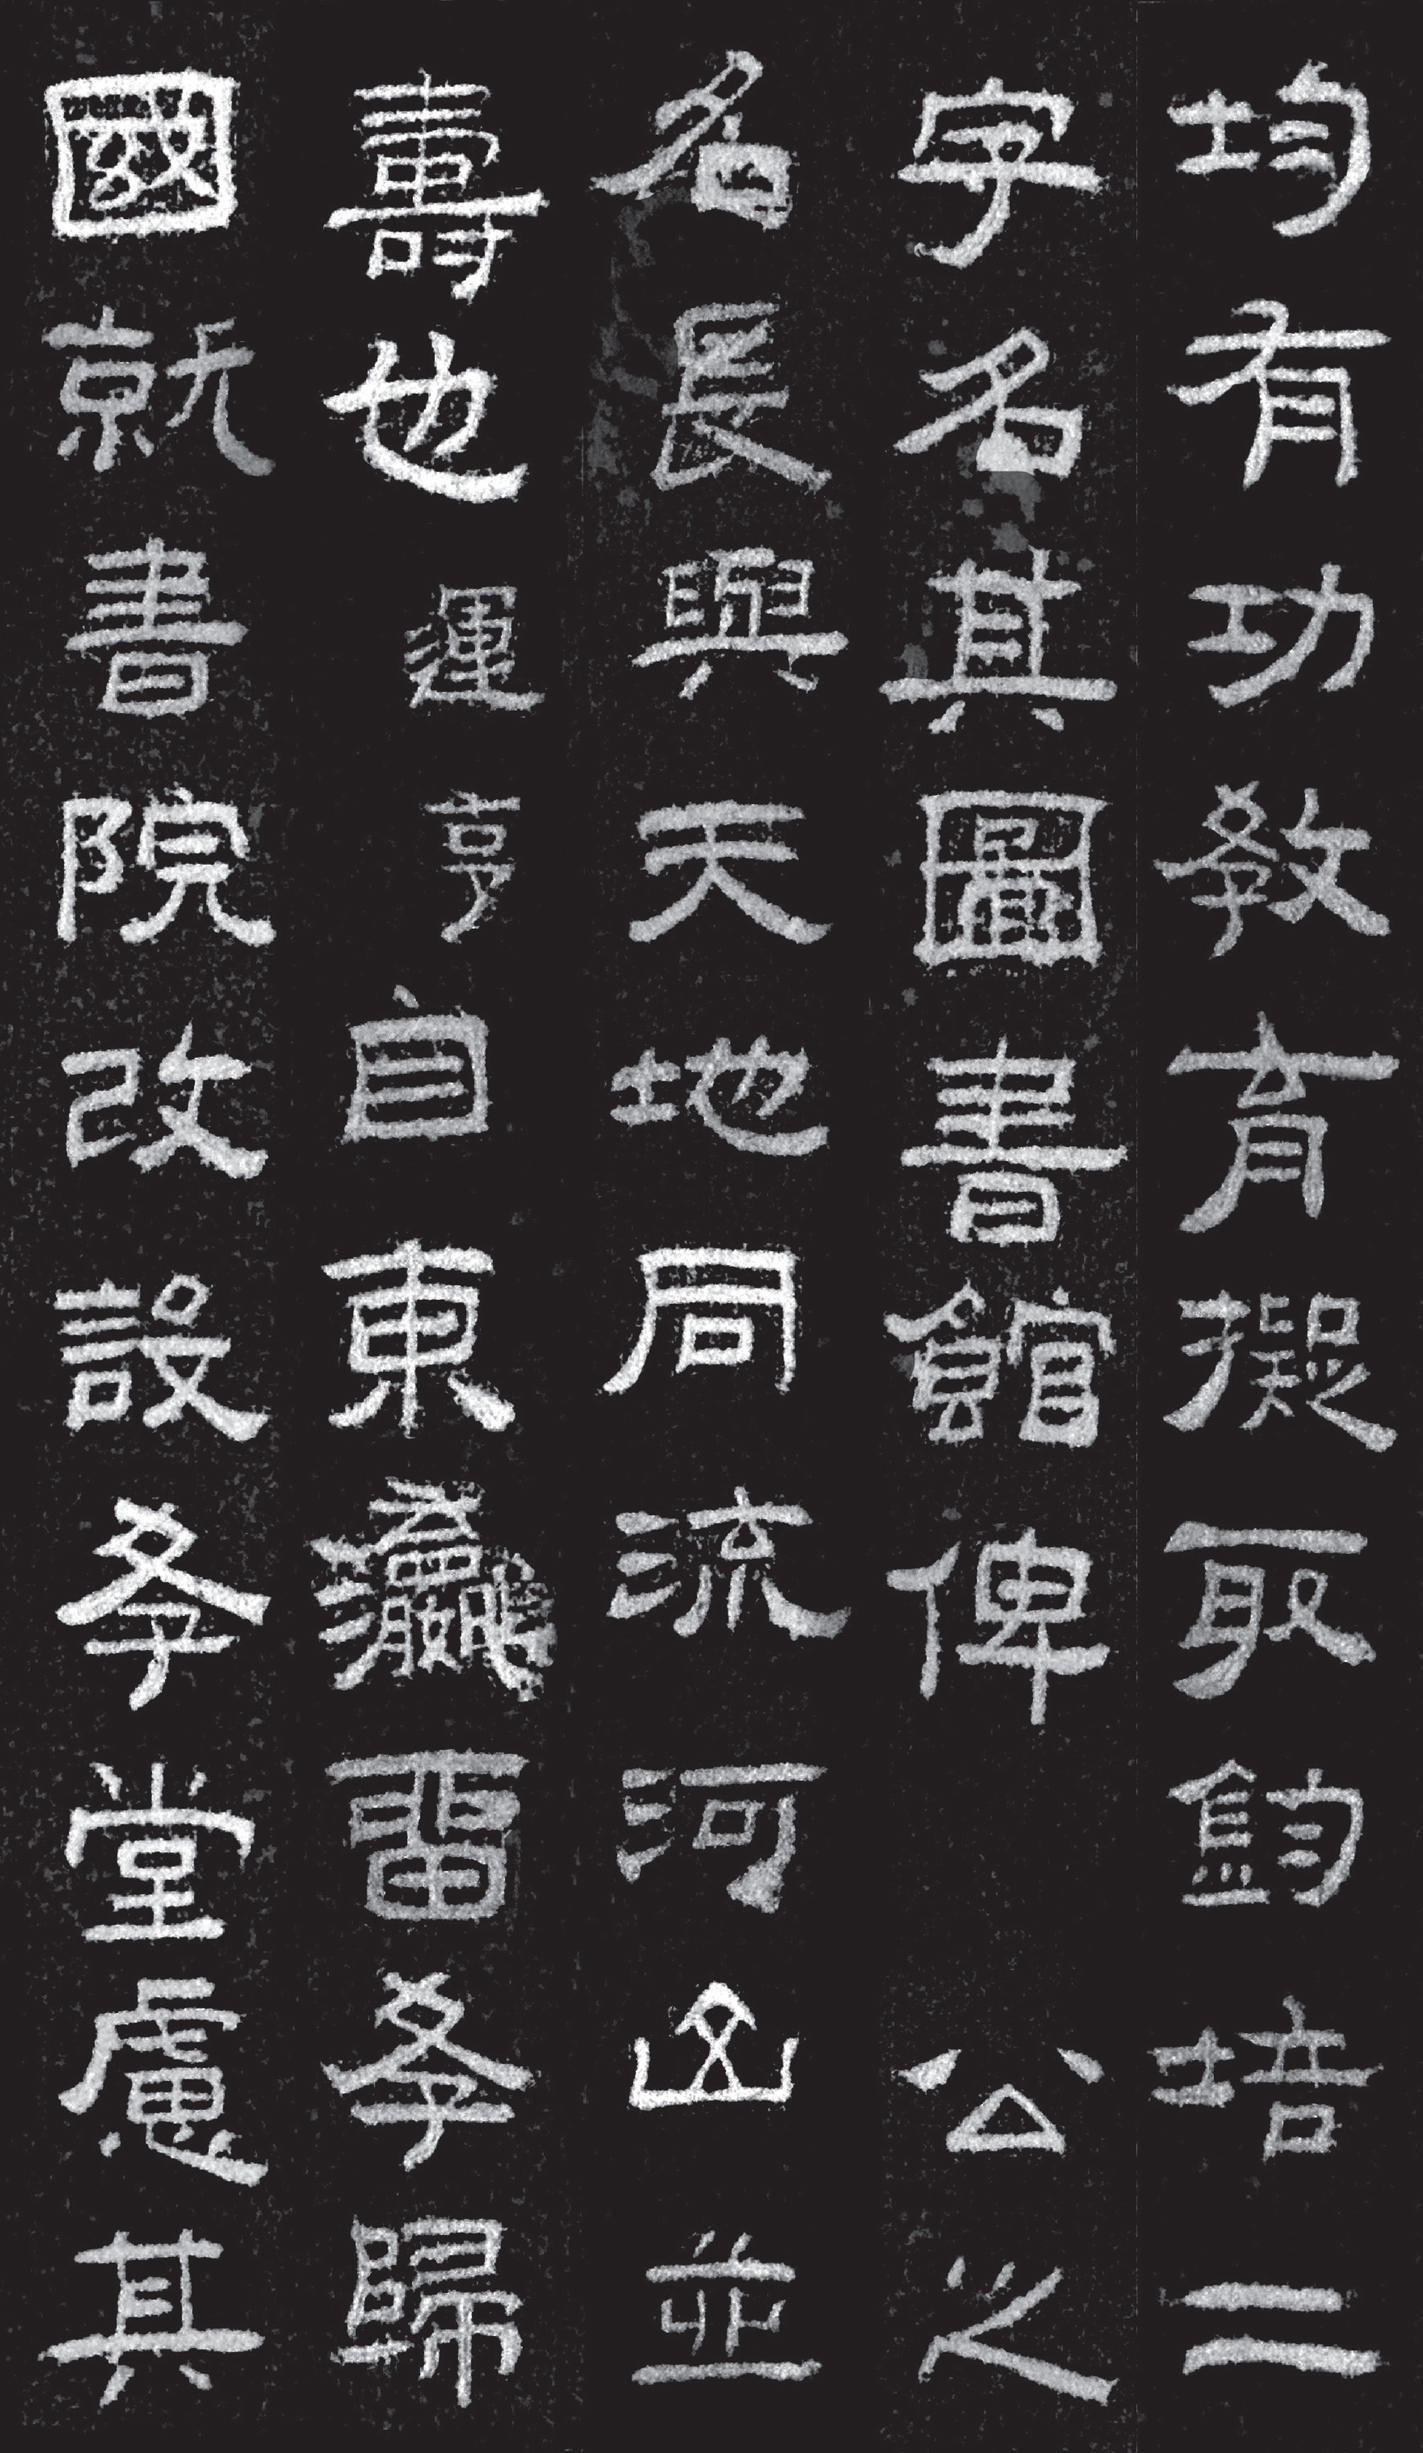 均有功教育擬取鈞培二
字名其圖書館俾公之
名長與天地同流河山並
壽也運亨自東瀛畱學歸
國就書院改設學堂慮其